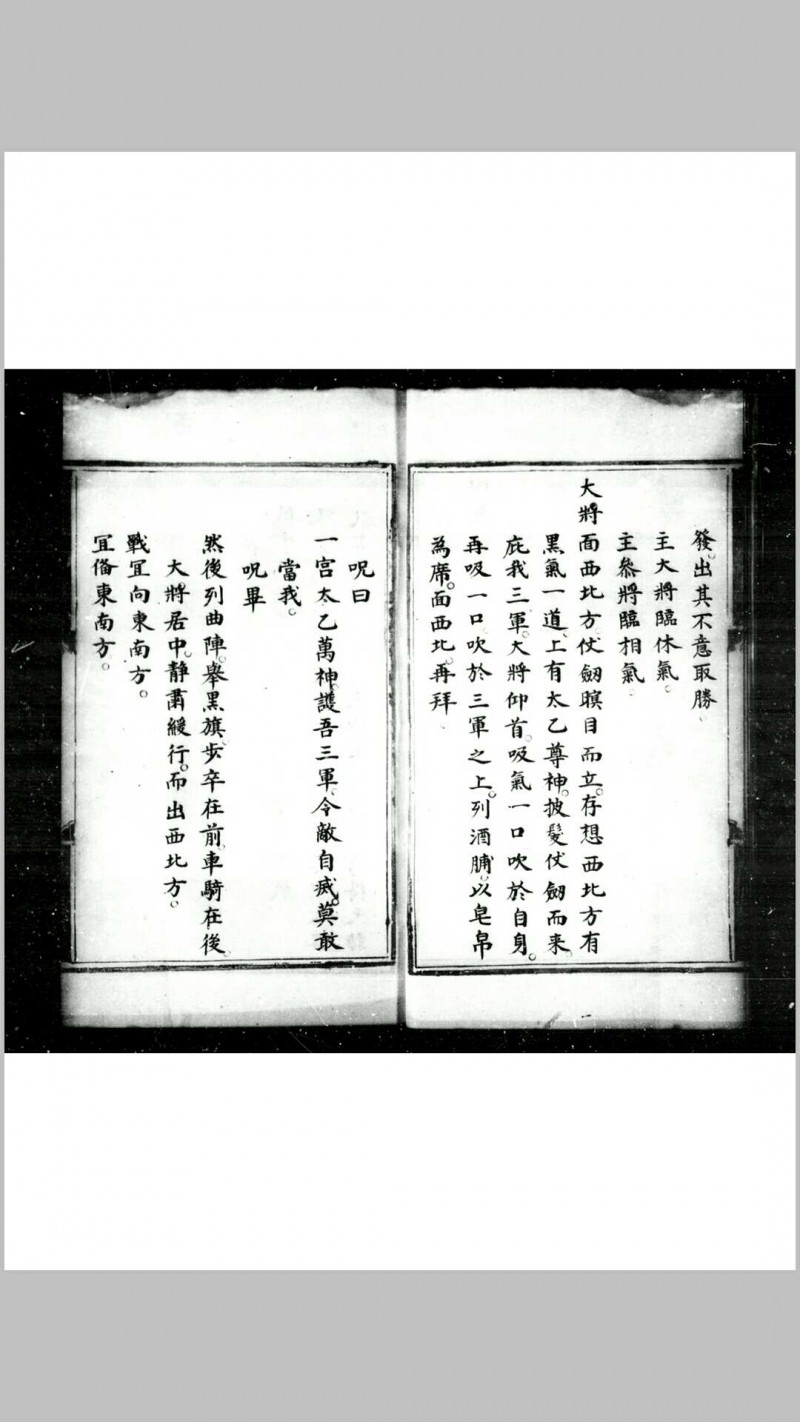 發。出其不意取勝。
主大將臨休氣。
主叅將臨相氣。
大將面西北方。仗劒瞑目而立。存想西北方有
黑氣一道。上有太乙尊神。披髮仗劒而來。
庇我三軍。大將仰首。吸氣一口吹於自身。
再吸一口吹於三軍之上。列酒脯。以皂帛
為席。面西北。再拜
呪曰
一宮太乙萬神。護吾三軍。令敵自滅。莫敢
當我。
呪畢
然後列曲陣。舉黑旗。步卒在前。車騎在後。
大將居中。靜肅緩行。而出西北方。
戰宜向東南方。
宜俻東南方。